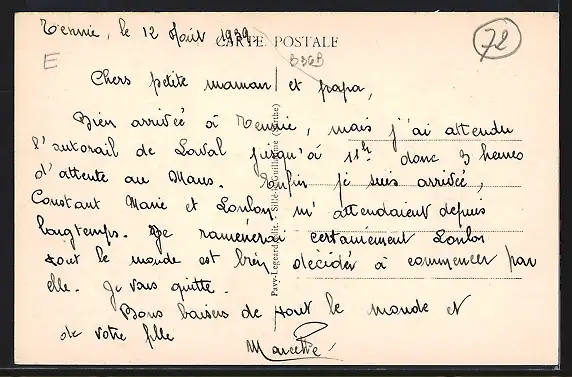 Tennie, le 12 Août 1939
CARTE POSTALE
72
E
B36B
Chers petite maman et papa,
Bien arrivée à Tennie, mais j'ai attendu
l'autorail de Laval jusqu'à 11h donc 3 heures
d'attente au Mans. Enfin je suis arrivée,
Constant Marie et Loulou m'attendaient depuis
longtemps. Je ramènerai certainement Loulou
tout le monde est bien décidér à commencer par
elle. Je vous quitte.
Bons baisers de tout le monde et
de votre fille
Marcelle
Pavy-Legeard, édit., Sillé-le-Guillaume (Sarthe)